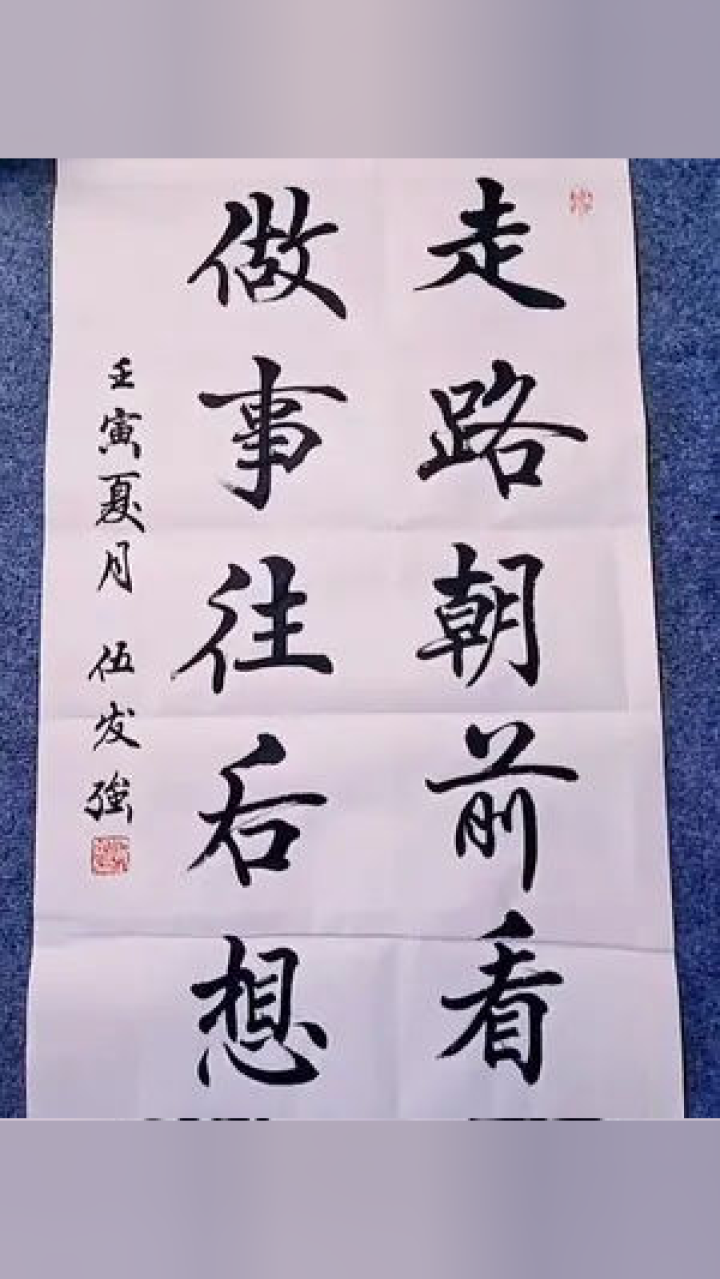 走路朝前看
做事往后想
壬寅夏月 伍发强